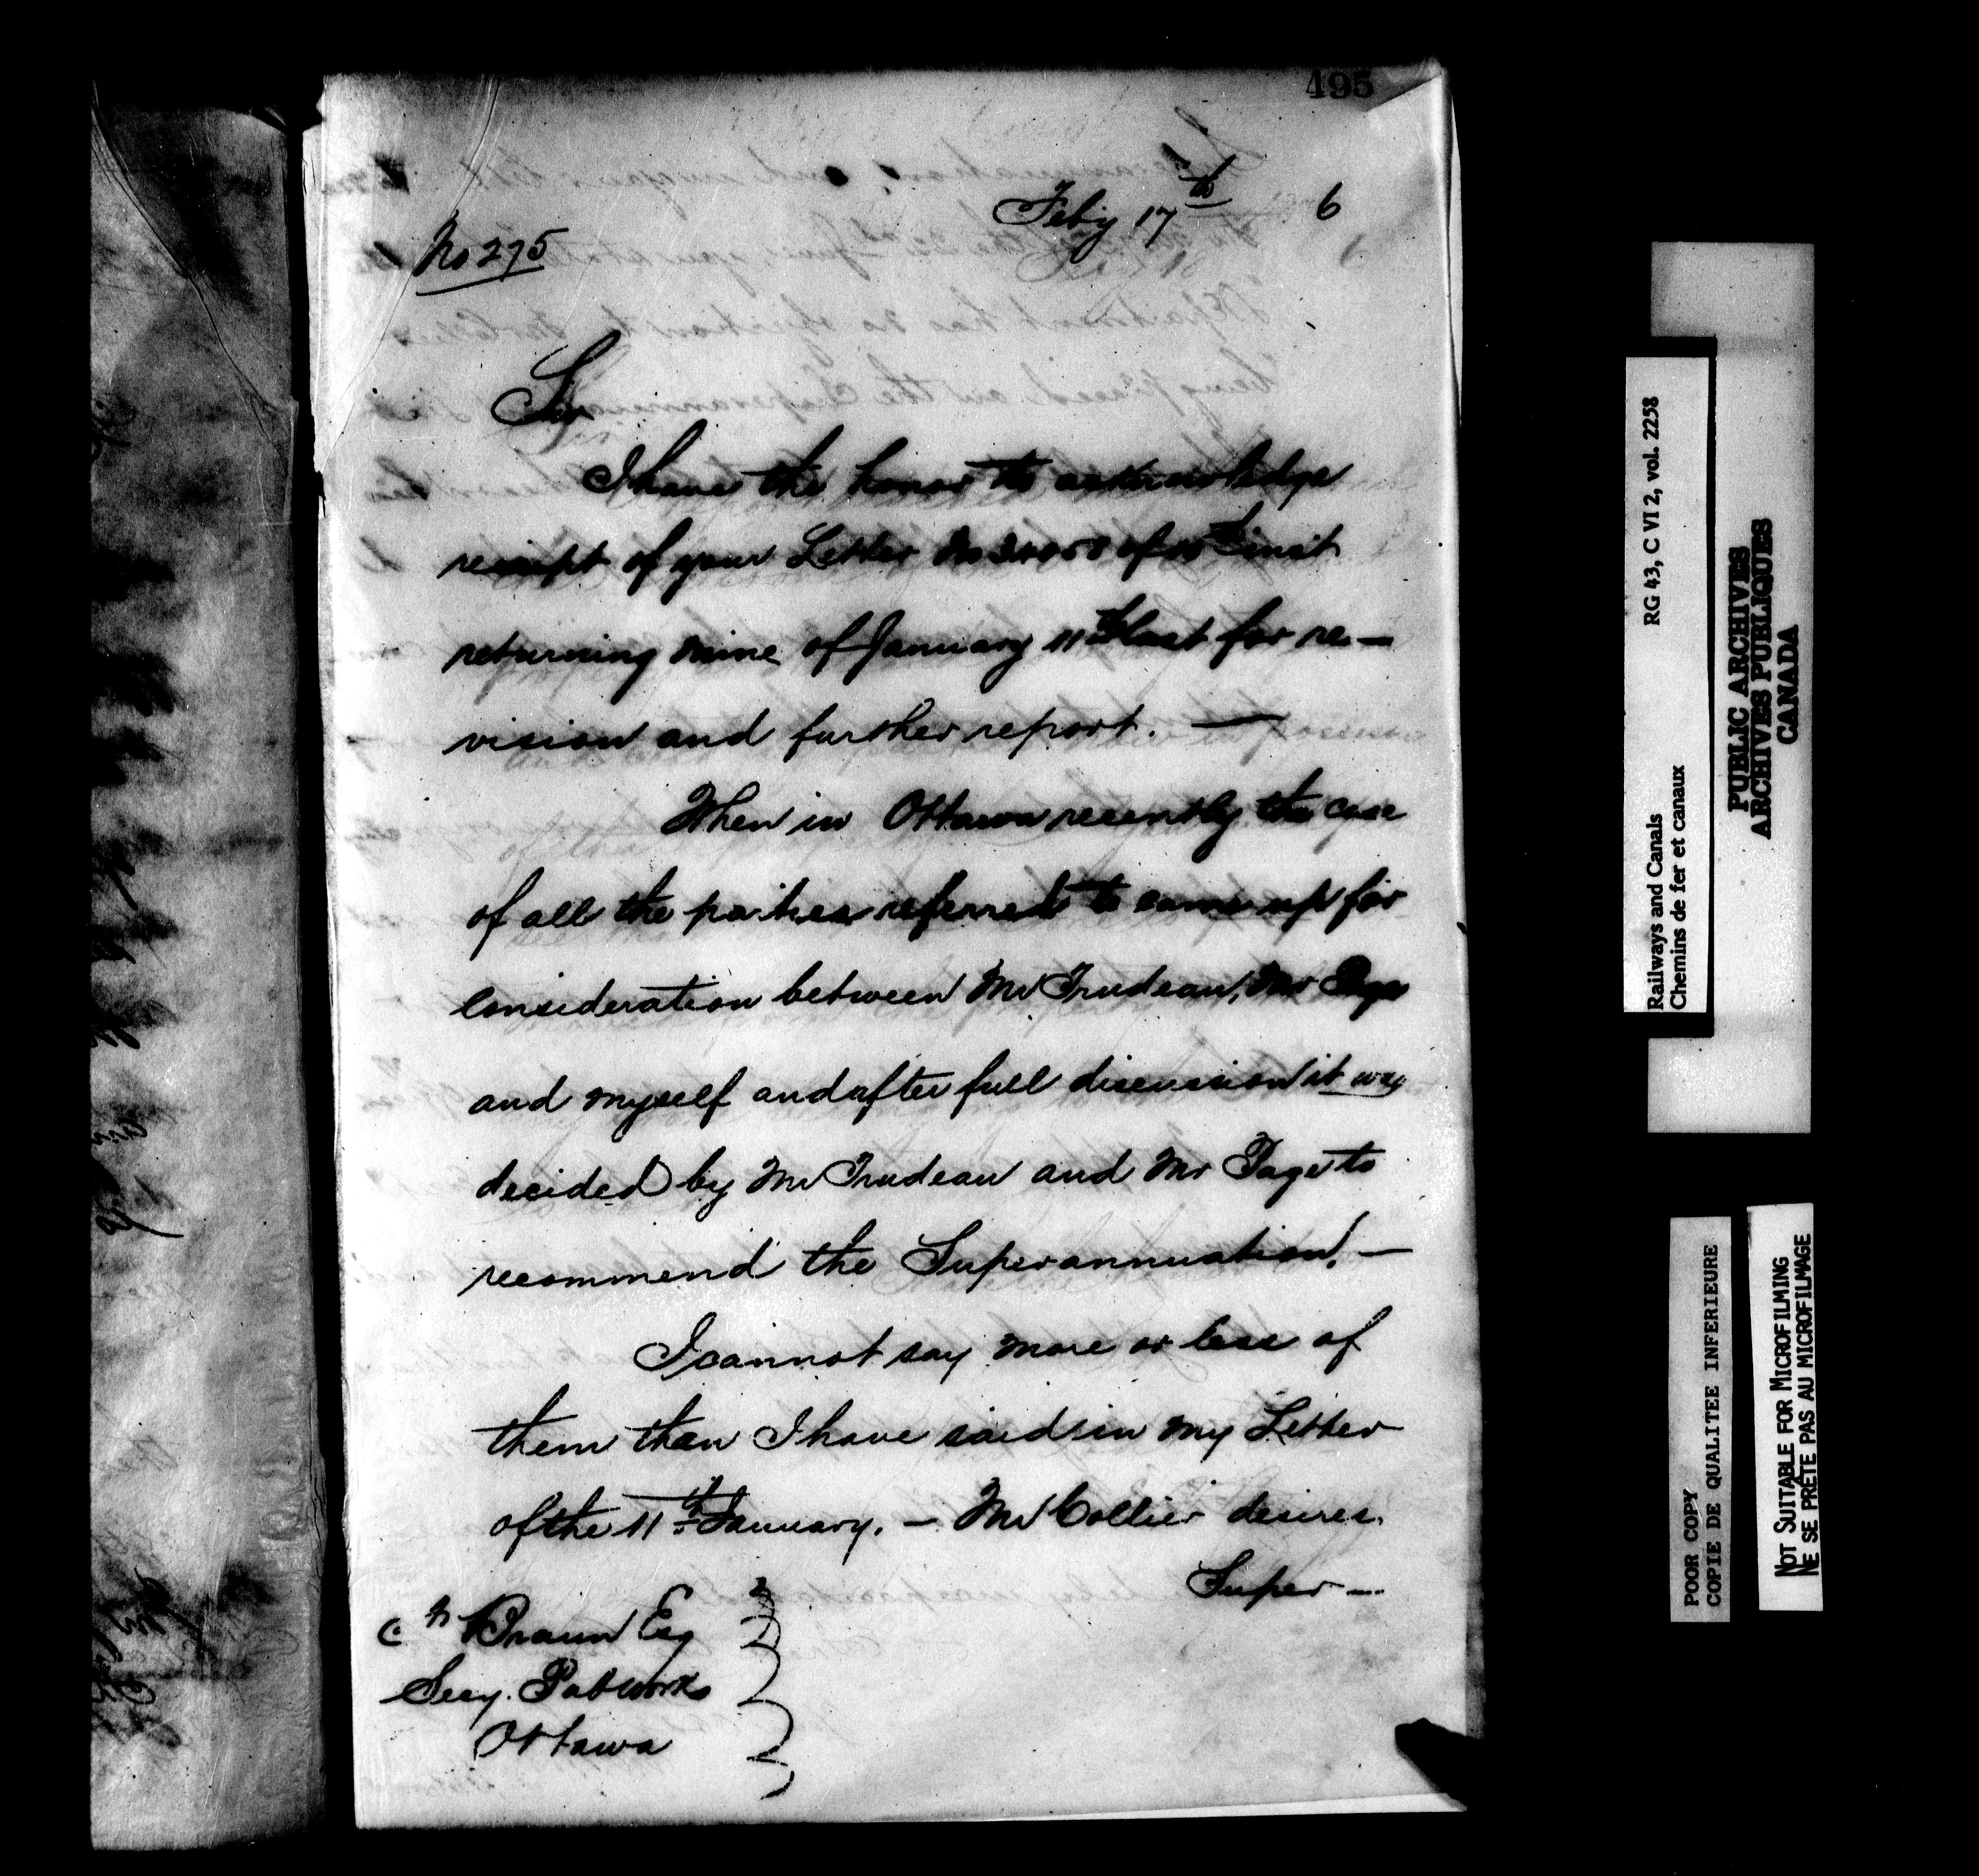 495
Feby 17th 6
No 275
Sir
I have the honor to acknowledge
receipt of your Letter No of inst
returning mine of January 11th last for re-
vision and further report. —
When in Ottawa recently the case
of all the parties referred to came up for
consideration between Mr Trudeau, Mr Page
and myself and after full discussion it was
decided by Mr Trudeau and Mr Page to
recommend the Superannuation. —
I cannot say more or less of
them than I have said in my Letter
of the 11th January. — Mr Collier desires
Super —
Braun Esq
Secy. Pub Works
Ottawa
Railways and Canals RG 43, C VI 2, vol. 2258
Chemins de fer et canaux
PUBLIC ARCHIVES
ARCHIVES PUBLIQUES
CANADA
POOR COPY
COPIE DE QUALITEE INFERIEURE
NOT SUITABLE FOR MICROFILMING
NE SE PRÊTE PAS AU MICROFILMAGE